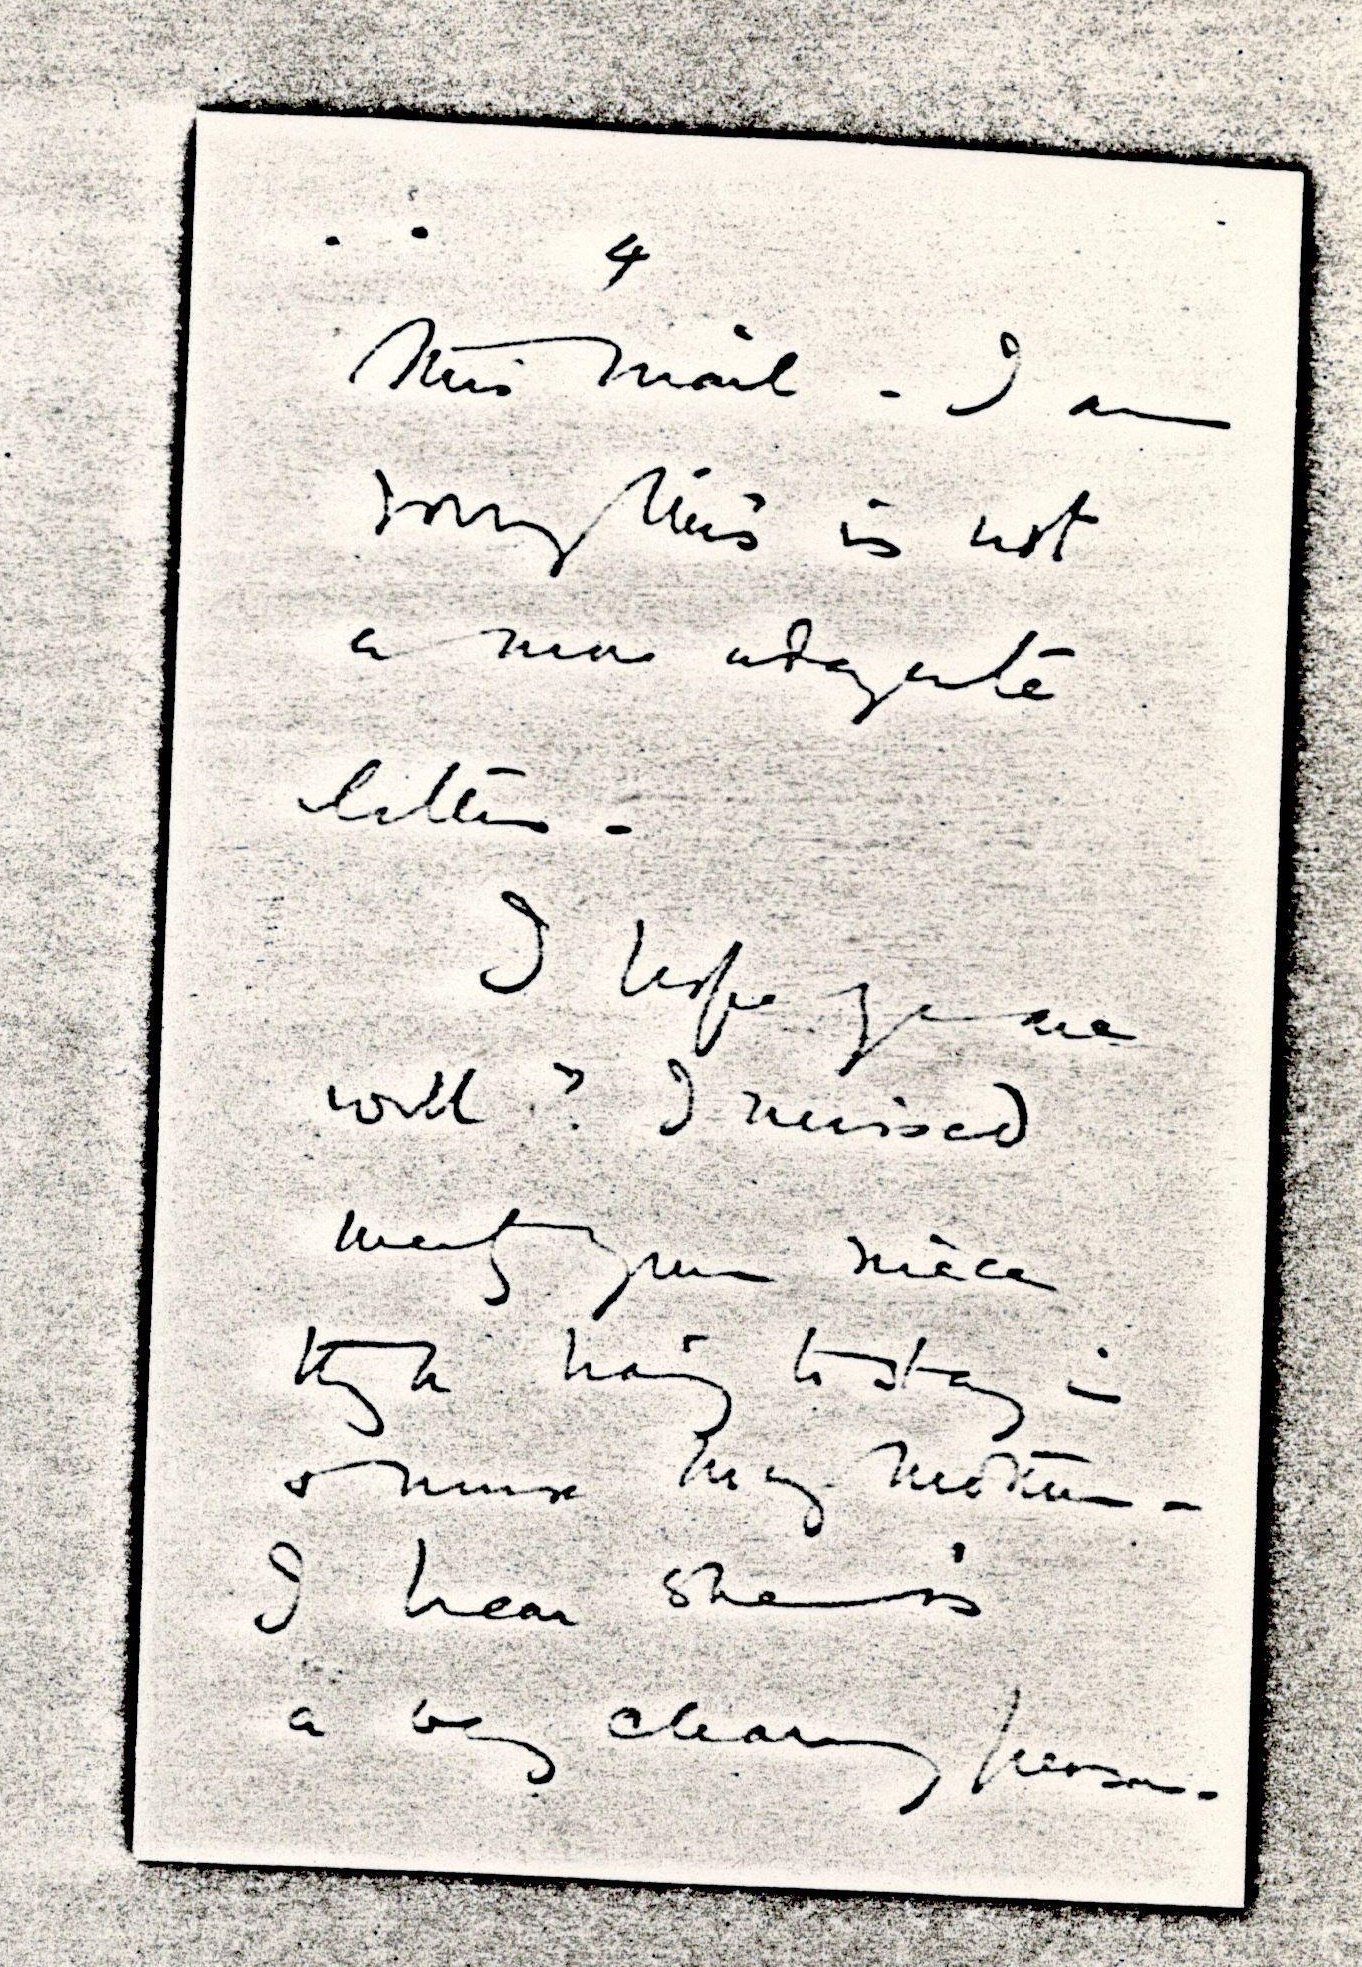 4
this mail - I am
sorry this is not
a more adequate
letter -
I hope you are
well? I missed
meeting your niece
through having to stay in
& nurse my mother -
I hear she is
a very charming person -